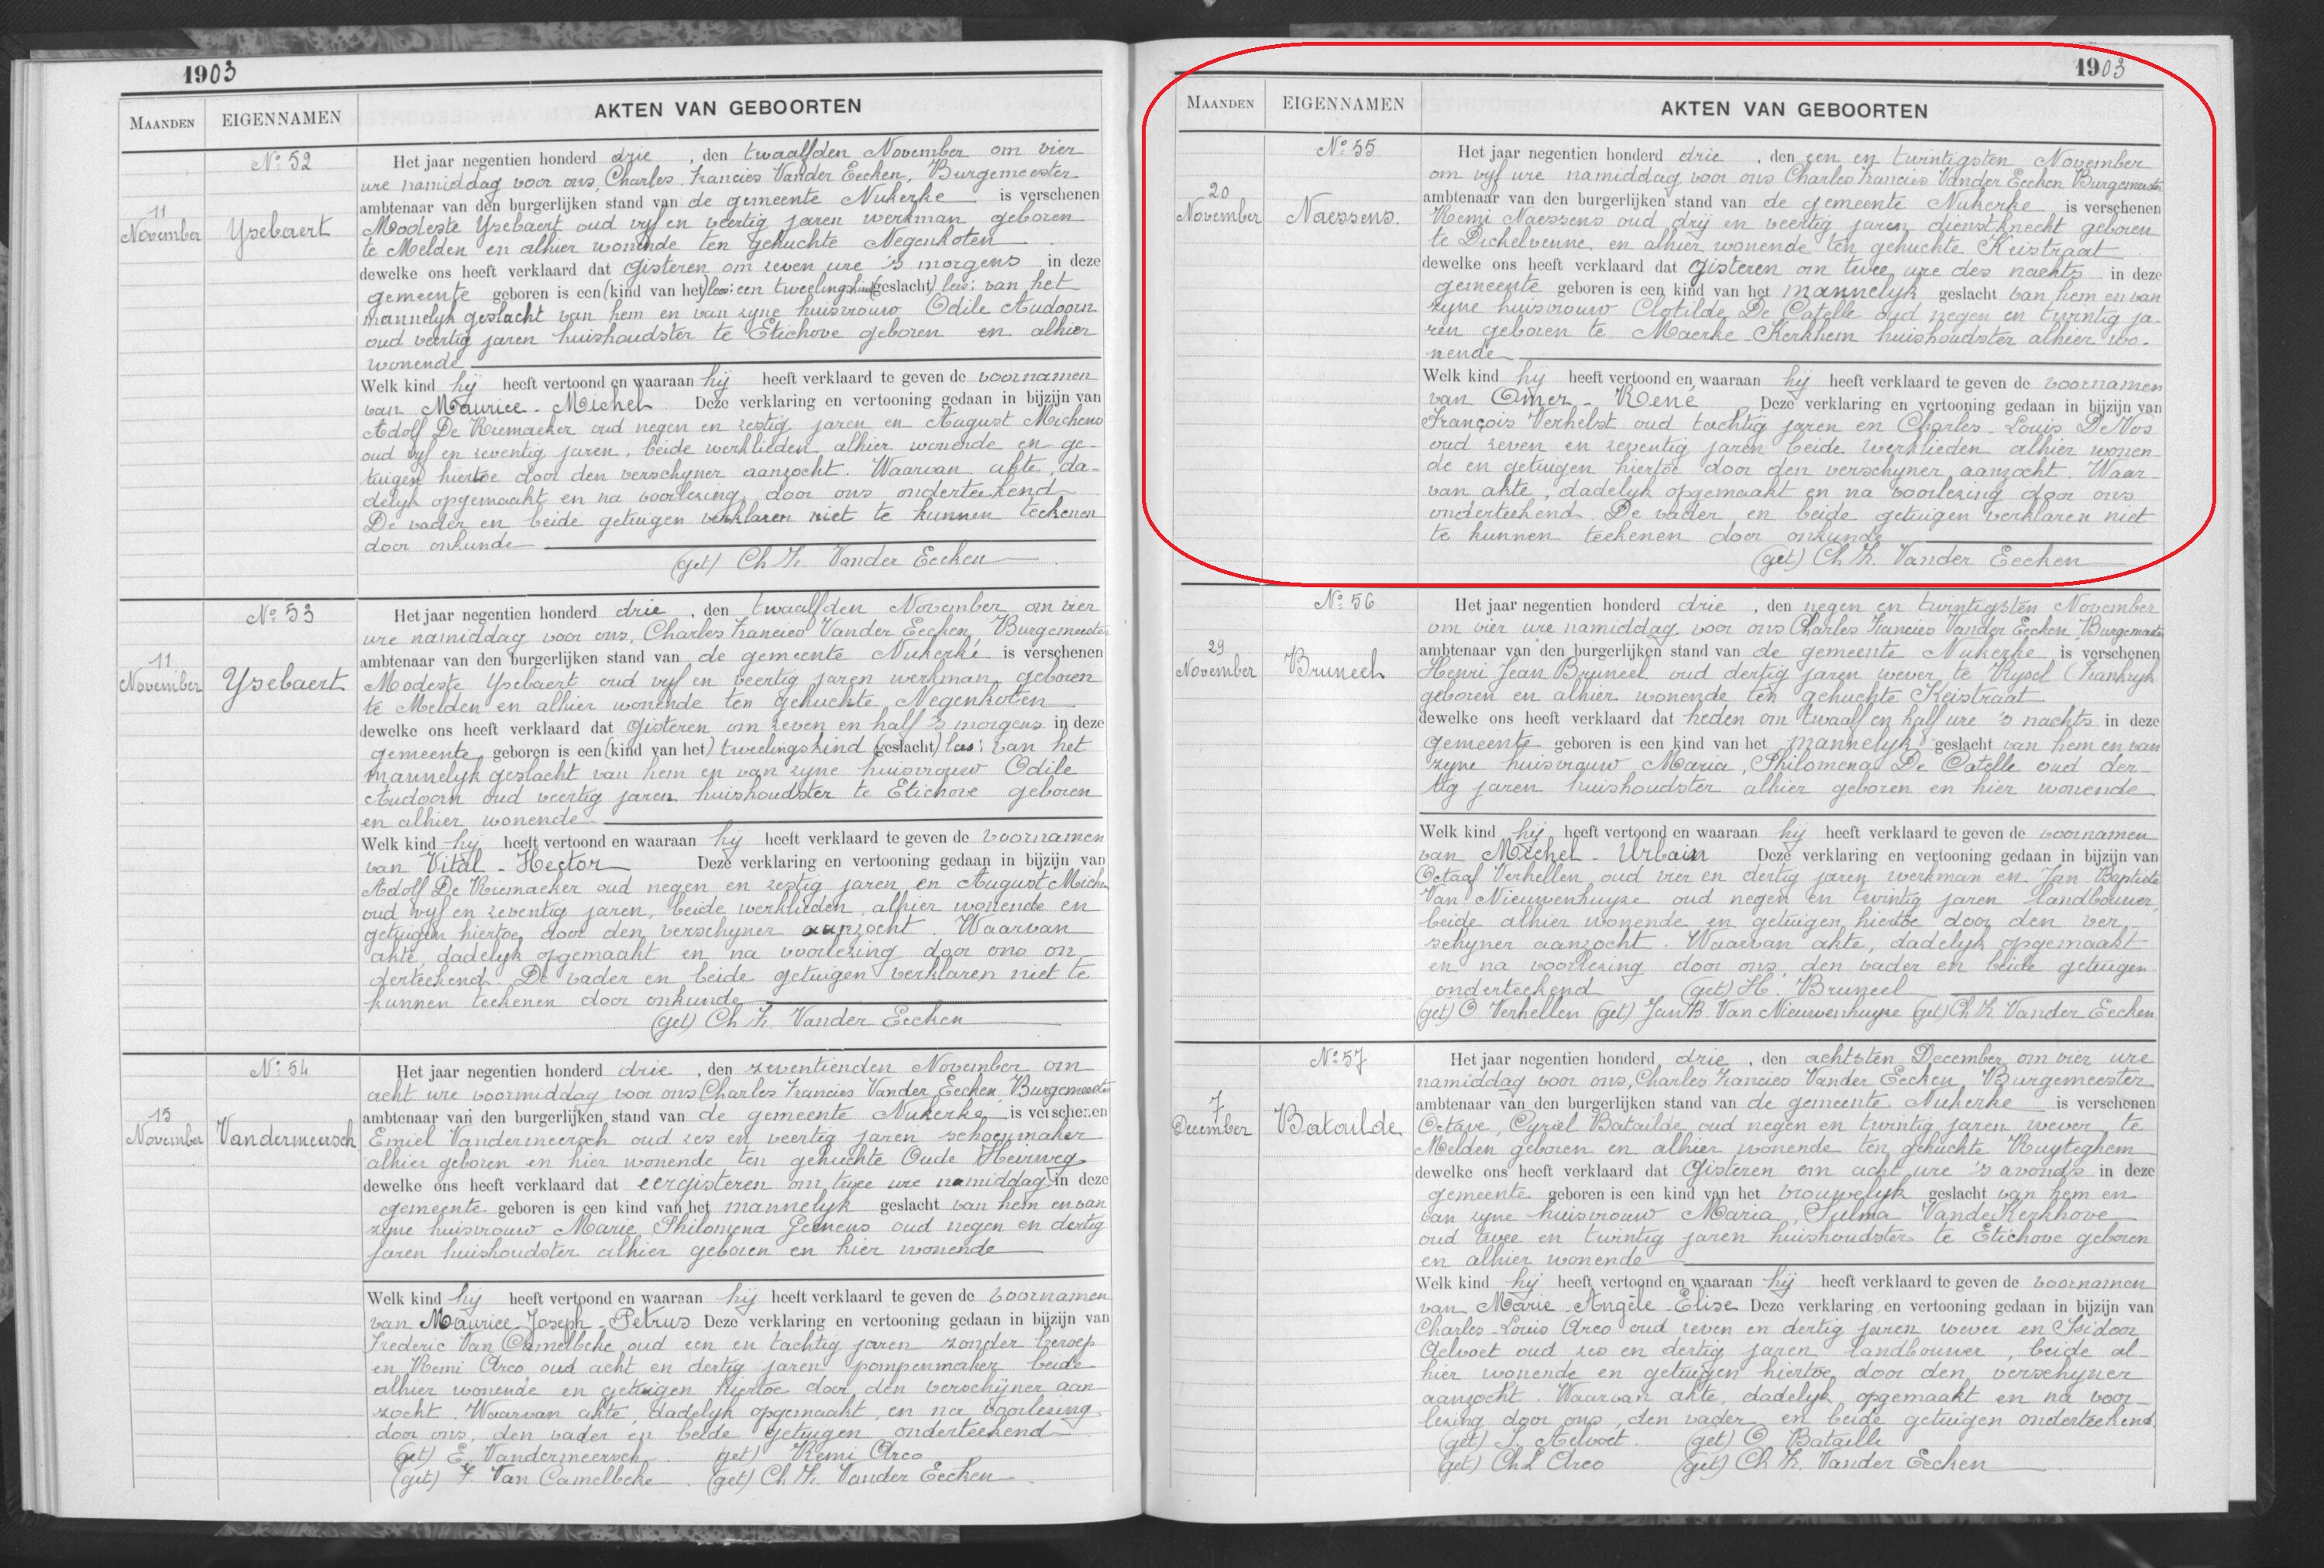 1903
MAANDEN EIGENNAMEN AKTEN VAN GEBOORTEN
No 52
11 November
Ysebaert
Het jaar negentien honderd drie, den twaalfden November om vier
ure namiddag voor ons, Charles Francies Vander Eecken, Burgemeester
ambtenaar van den burgerlijken stand van de gemeente Nukerke is verschenen
Modeste Ysebaert oud vyf en veertig jaren werkman geboren
te Melden en alhier wonende ten gehuchte Negenkoten
dewelke ons heeft verklaard dat gisteren om zeven ure 's morgens in deze
gemeente geboren is een (kind van het) lees: een tweelingskind (geslacht) lees: van het
mannelyk geslacht van hem en van zyne huisvrouw Odile Audoorn
oud veertig jaren huishoudster te Etichove geboren en alhier
wonende
Welk kind hij heeft vertoond en waaraan hij heeft verklaard te geven de voornamen
van Maurice - Michel Deze verklaring en vertooning gedaan in bijzijn van
Adolf De Riemaeker oud negen en zestig jaren en August Michens
oud vyf en zeventig jaren, beide werklieden alhier wonende en ge-
tuigen hiertoe door den verschyner aanzocht. Waarvan akte, da-
delyk opgemaakt en na voorlezing door ons onderteekend
De vader en beide getuigen verklaren niet te kunnen teekenen
door onkunde
(get) Ch F. Vander Eecken
No 53
11 November
Ysebaert
Het jaar negentien honderd drie, den twaalfden November om vier
ure namiddag voor ons, Charles Francies Vander Eecken, Burgemeester
ambtenaar van den burgerlijken stand van de gemeente Nukerke is verschenen
Modeste Ysebaert oud vyf en veertig jaren werkman, geboren
te Melden en alhier wonende ten gehuchte Negenkoten
dewelke ons heeft verklaard dat gisteren om zeven en half 's morgens in deze
gemeente geboren is een (kind van het) tweelingskind (geslacht) lees: van het
mannelyk geslacht van hem en van zyne huisvrouw Odile
Audoorn oud veertig jaren huishoudster te Etichove geboren
en alhier wonende
Welk kind hij heeft vertoond en waaraan hij heeft verklaard te geven de voornamen
van Vital - Hector Deze verklaring en vertooning gedaan in bijzijn van
Adolf De Riemaeker oud negen en zestig jaren en August Michens
oud vyf en zeventig jaren, beide werklieden, alhier wonende en
getuigen hiertoe door den verschyner aanzocht. Waarvan
akte, dadelyk opgemaakt en na voorlezing door ons on-
derteekend. De vader en beide getuigen verklaren niet te
kunnen teekenen door onkunde
(get) Ch F. Vander Eecken
No 54
15 November
Vandermeersch
Het jaar negentien honderd drie, den zeventienden November om
acht ure voormiddag voor ons Charles Francies Vander Eecken, Burgemeester
ambtenaar van den burgerlijken stand van de gemeente Nukerke is verschenen
Emiel Vandermeersch oud zes en veertig jaren schoenmaker
alhier geboren en hier wonende ten gehuchte Oude Heirweg
dewelke ons heeft verklaard dat eergisteren om twee ure namiddag in deze
gemeente geboren is een kind van het mannelyk geslacht van hem en van
zyne huisvrouw Marie Philomena oud negen en dertig
jaren huishoudster alhier geboren en hier wonende
Welk kind hij heeft vertoond en waaraan hij heeft verklaard te geven de voornamen
van Maurice-Joseph-Petrus Deze verklaring en vertooning gedaan in bijzijn van
Frederic Van Camelbeke oud een en tachtig jaren zonder beroep
en Remi Arco oud acht en dertig jaren pompenmaker beide
alhier wonende en getuigen hiertoe door den verschijner aan-
zocht. Waarvan akte, dadelyk opgemaakt, en na voorlezing
door ons, den vader en beide getuigen onderteekend
(get) E. Vandermeersch (get) Remi Arco
(get) F. Van Camelbeke. (get) Ch F. Vander Eecken
1903
MAANDEN EIGENNAMEN AKTEN VAN GEBOORTEN
No 55
20 November
Naessens.
Het jaar negentien honderd drie, den een en twintigsten November
om vyf ure namiddag voor ons Charles Francies Vander Eecken Burgemeester
ambtenaar van den burgerlijken stand van de gemeente Nukerke is verschenen
Remi Naessens oud drij en veertig jaren dienstknecht geboren
te Dickelvenne, en alhier wonende ten gehuchte Keistraat
dewelke ons heeft verklaard dat gisteren om twee ure des nachts in deze
gemeente geboren is een kind van het mannelyk geslacht van hem en van
zyne huisvrouw Clotilde De Catelle oud negen en twintig ja-
ren geboren te Maerke-Kerkhem huishoudster alhier wo-
nende
Welk kind hij heeft vertoond en waaraan hij heeft verklaard te geven de voornamen
van Omer - René Deze verklaring en vertooning gedaan in bijzijn van
François Verhelst oud tachtig jaren en Charles-Louis De Vos
oud zeven en zeventig jaren beide werklieden alhier wonen-
de en getuigen hiertoe door den verschyner aanzocht. Waar-
van akte, dadelyk opgemaakt en na voorlezing door ons
onderteekend. De vader en beide getuigen verklaren niet
te kunnen teekenen door onkunde
(get) Ch F. Vander Eecken
No 56
29 November
Bruneel
Het jaar negentien honderd drie, den negen en twintigsten November
om vier ure namiddag voor ons Charles Francies Vander Eecken, Burgemeester
ambtenaar van den burgerlijken stand van de gemeente Nukerke is verschenen
Henri Jean Bruneel oud dertig jaren wever te Rysel (Frankryk
geboren en alhier wonende ten gehuchte Keistraat
dewelke ons heeft verklaard dat heden om twaalf en half ure 's nachts in deze
gemeente geboren is een kind van het mannelyk geslacht van hem en van
zyne huisvrouw Maria, Philomena De Catelle oud der-
tig jaren huishoudster alhier geboren en hier wonende
Welk kind hij heeft vertoond en waaraan hij heeft verklaard te geven de voornamen
van Michel - Urbain Deze verklaring en vertooning gedaan in bijzijn van
Octaaf Verhellen oud vier en dertig jaren werkman en Jan Baptiste
Van Nieuwenhuyse oud negen en twintig jaren landbouwer,
beide alhier wonende en getuigen hiertoe door den ver-
schyner aanzocht. Waarvan akte, dadelyk opgemaakt
en na voorlezing door ons, den vader en beide getuigen
onderteekend (get) H. Bruneel
(get) O Verhellen (get) Jan B. Van Nieuwenhuyse (get) Ch F. Vander Eecken
No 57
7 December
Batailde
Het jaar negentien honderd drie, den achtsten December om vier ure
namiddag voor ons, Charles Francies Vander Eecken Burgemeester
ambtenaar van den burgerlijken stand van de gemeente Nukerke is verschenen
Octave, Cyriel Batailde oud negen en twintig jaren wever te
Melden geboren en alhier wonende ten gehuchte Ruyteghem
dewelke ons heeft verklaard dat gisteren om acht ure 's avonds in deze
gemeente geboren is een kind van het vrouwelyk geslacht van hem en
van zyne huisvrouw Maria, Sulma VandeKerkhove
oud twee en twintig jaren huishoudster te Etichove geboren
en alhier wonende
Welk kind hij heeft vertoond en waaraan hij heeft verklaard te geven de voornamen
van Marie-Angèle-Elise Deze verklaring en vertooning gedaan in bijzijn van
Charles-Louis Arco oud zeven en dertig jaren wever en Isidoor
Aelvoet oud zes en dertig jaren landbouwer, beide al-
hier wonende en getuigen hiertoe door den verschyner
aanzocht. Waarvan akte, dadelyk opgemaakt en na voor-
lezing door ons, den vader en beide getuigen onderteekend
(get) I. Aelvoet. (get) O Bataille
(get) Ch L Arco (get) Ch F. Vander Eecken